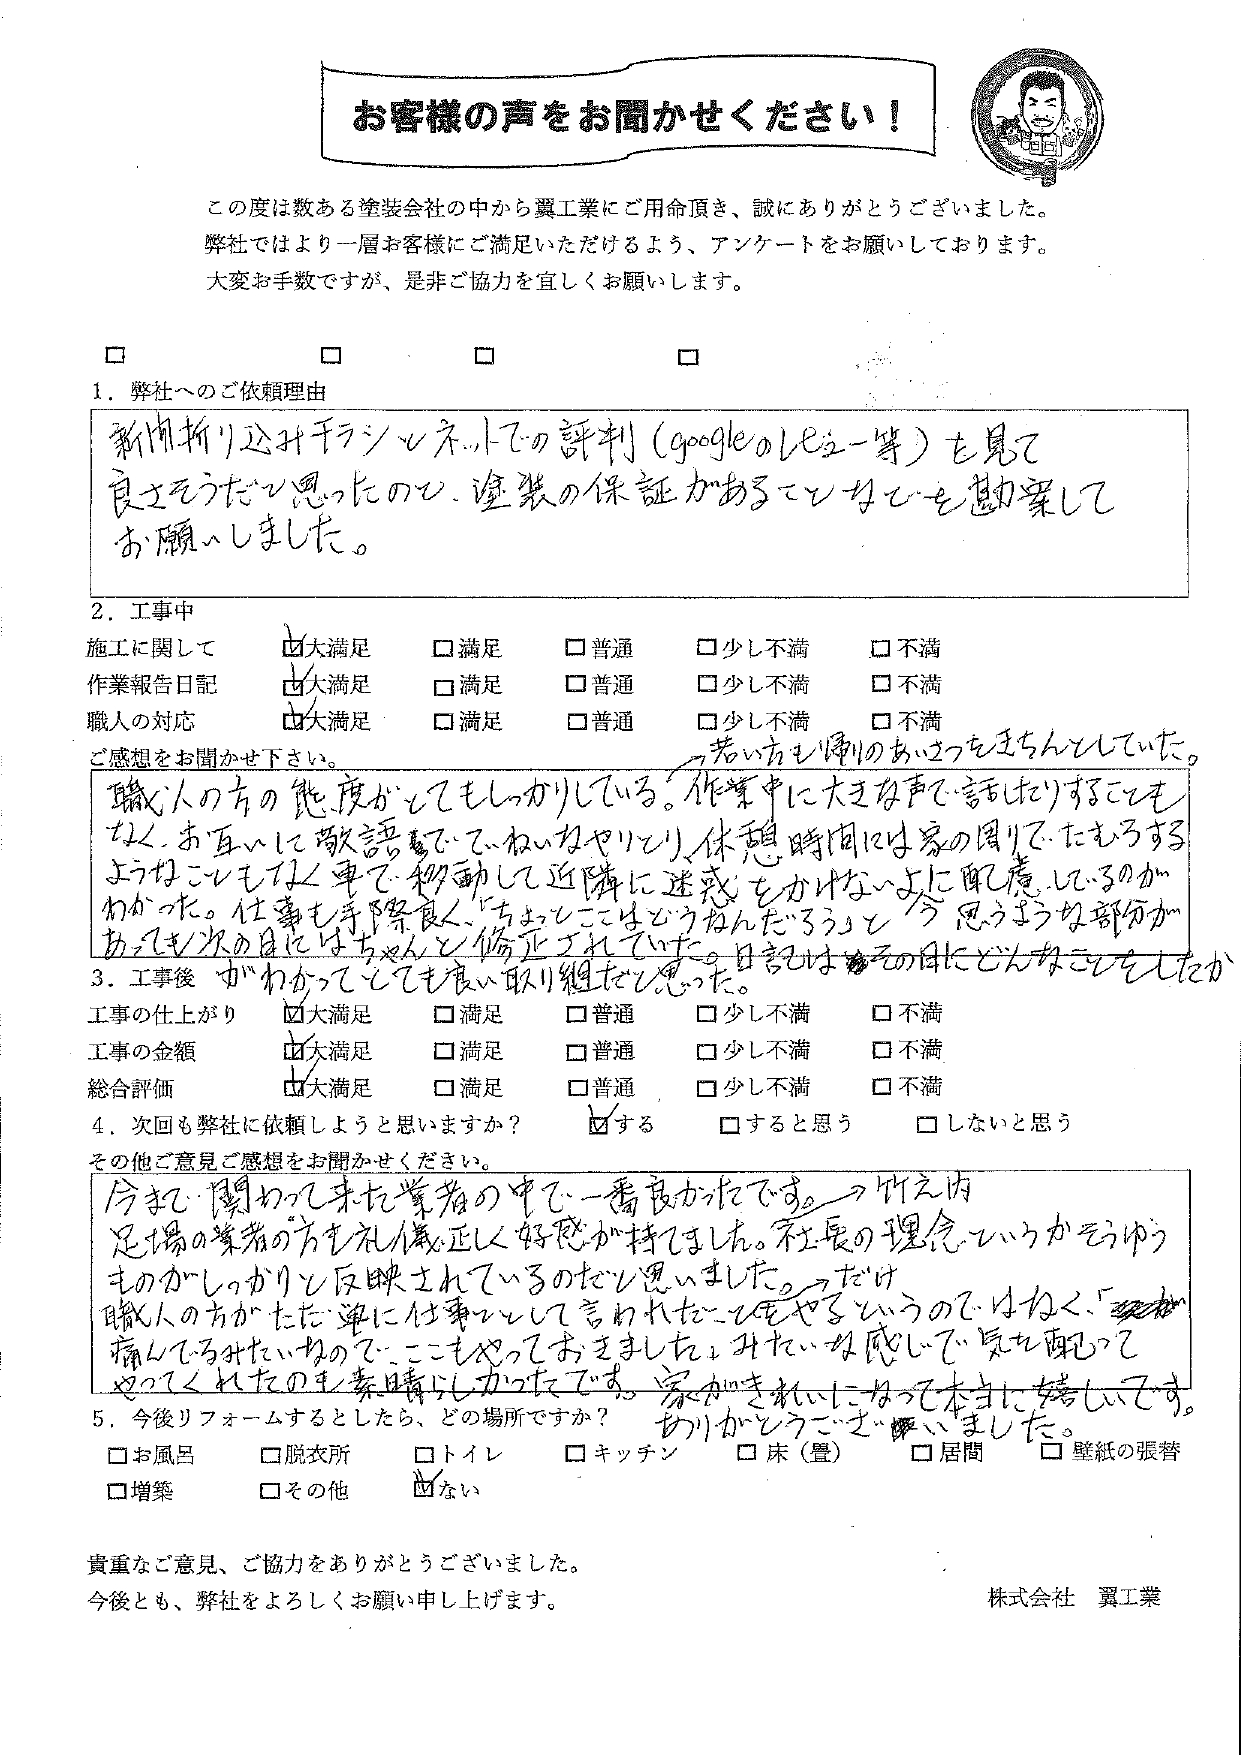 お客様の声をお聞かせください！
この度は数ある塗装会社の中から翼工業にご用命頂き、誠にありがとうございました。
弊社ではより一層お客様にご満足いただけるよう、アンケートをお願いしております。
大変お手数ですが、是非ご協力を宜しくお願いします。
□ □ □ □
1．弊社へのご依頼理由
新聞折り込みチラシとネットでの評判（googleのレビュー等）を見て
良さそうだと思ったのと、塗装の保証があることなどを勘案して
お願いしました。
2．工事中
施工に関して ☑大満足 □満足 □普通 □少し不満 □不満
作業報告日記 ☑大満足 □満足 □普通 □少し不満 □不満
職人の対応 ☑大満足 □満足 □普通 □少し不満 □不満
ご感想をお聞かせ下さい。
→若い方も帰りのあいさつをきちんとしていた。
職人の方の態度がとてもしっかりしている。作業中に大きな声で話したりすることも
なく、お互いに敬語でていねいなやりとり、休憩時間には家の周りでたむろする
ようなこともなく車で移動して近隣に迷惑をかけないように配慮しているのが
わかった。仕事も手際良く、「ちょっとここはどうなんだろう」と今思うような部分が
あっても次の日にはちゃんと修正されていた。日記はその日にどんなことをしたか
3．工事後 がわかってとても良い取り組だと思った。
工事の仕上がり ☑大満足 □満足 □普通 □少し不満 □不満
工事の金額 ☑大満足 □満足 □普通 □少し不満 □不満
総合評価 ☑大満足 □満足 □普通 □少し不満 □不満
4．次回も弊社に依頼しようと思いますか？ ☑する □すると思う □しないと思う
その他ご意見ご感想をお聞かせください。
今まで関わって来た業者の中で一番良かったです。→竹之内
足場の業者の方も礼儀正しく好感が持てました。社長の理念というかそうゆう
ものがしっかりと反映されているのだと思いました。→だけ
職人の方がただ単に仕事として言われたことをやるというのではなく、「
痛んでるみたいなので、ここもやっておきました」みたいな感じで気を配って
やってくれたのも素晴らしかったです。家がきれいになって本当に嬉しいです。
5．今後リフォームするとしたら、どの場所ですか？ ありがとうございました。
□お風呂 □脱衣所 □トイレ □キッチン □床（畳） □居間 □壁紙の張替
□増築 □その他 ☑ない
貴重なご意見、ご協力をありがとうございました。
今後とも、弊社をよろしくお願い申し上げます。
株式会社 翼工業